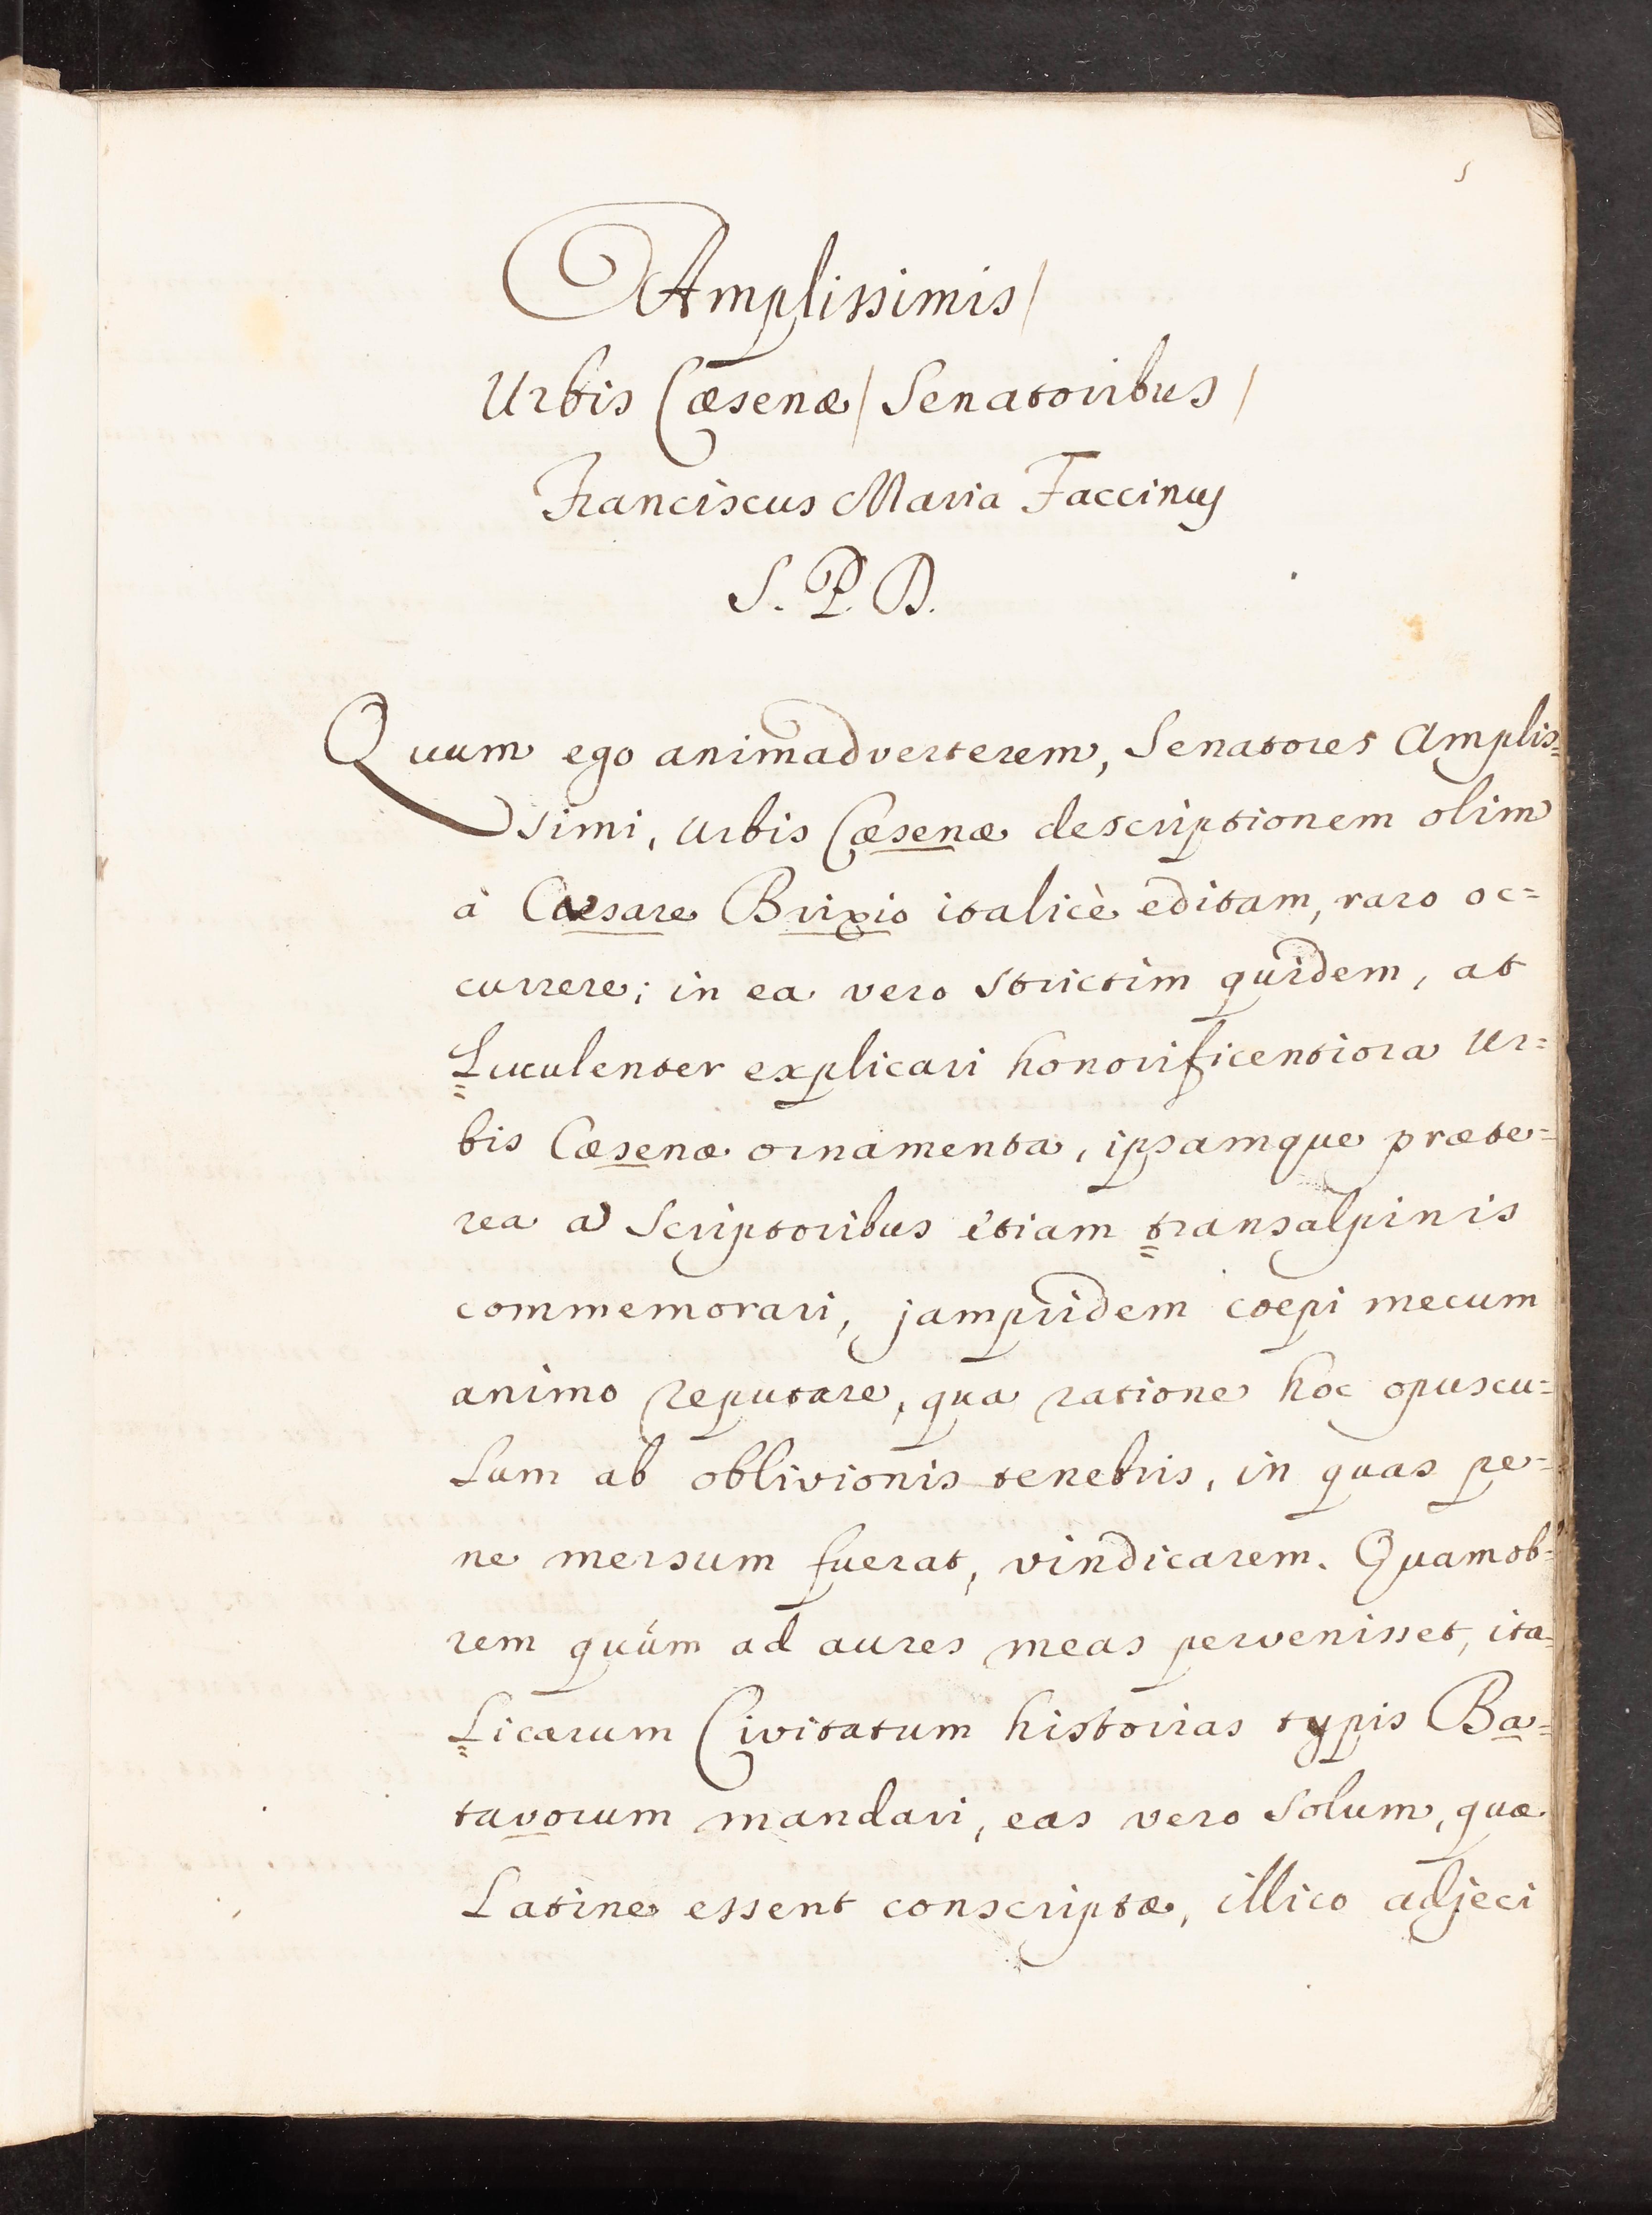 5
Amplissimis/
Urbis Cæsenæ/ Senatoribus/
Franciscus Maria Faccinus
S. P. D.
Quum ego animadverterem, Senatores Amplis=
simi, Urbis Cæsenæ descriptionem olim
à Cæsare Brixio italicè editam, raro oc=
currere; in ea vero strictim quidem, at
Luculenter explicari honorificentiora Ur=
bis Cæsenæ ornamenta, ipsamque præte=
rea a Scriptoribus etiam transalpinis
commemorari, jampridem coepi mecum
animo reputare, qua ratione hoc opuscu=
lum ab oblivionis tenebris, in quas pe=
ne mersum fuerat, vindicarem. Quamob=
rem quùm ad aures meas pervenisset, ita=
Licarum Civitatum historias typis Ba=
tavorum mandari, eas vero solum, quæ
Latine essent conscriptæ, illico adjeci